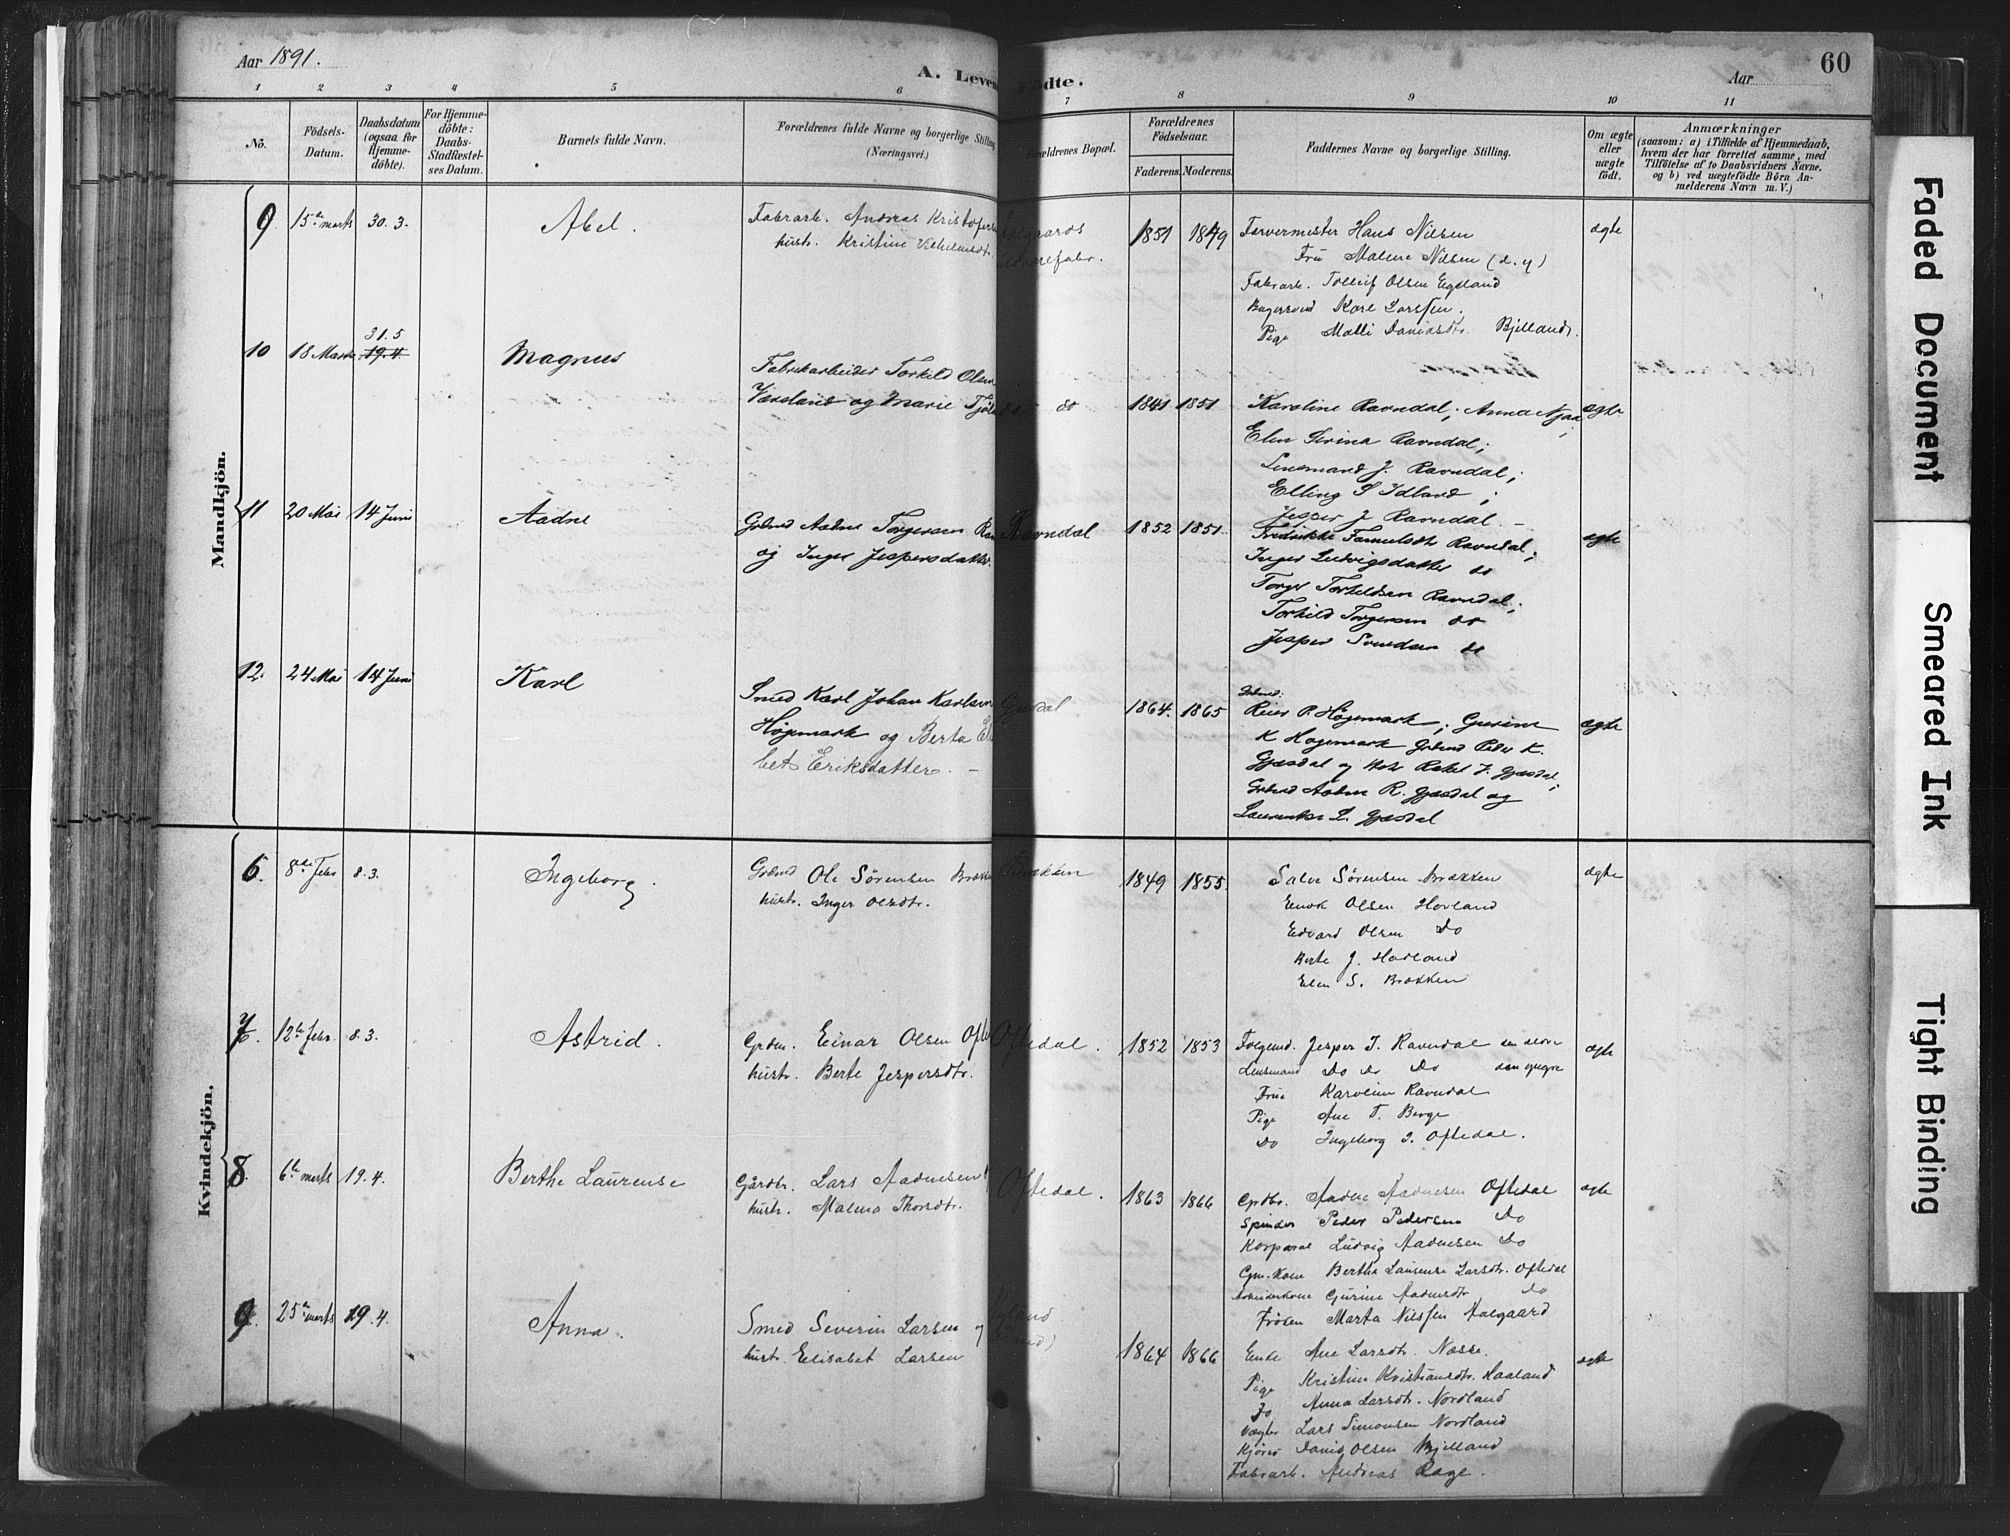 Aar 1891.
A. Leven
ödte.
Aar
60
1 2 3 4 5 6 7 8 9 10 11
No.
Födsels-Datum.
Daabsdatum (ogsaa for Hjemme-döbte).
For Hjemme-döbte: Daabs-Stadfæstel-ses Datum.
Barnets fulde Navn.
Forældrenes fulde Navne og borgerlige Stilling (Næringsvei.)
Forældrenes Bopæl.
Forældrenes Födselsaar.
Faderens. Moderens.
Faddernes Navne og borgerlige Stilling.
Om ægte eller uægte födt.
Anmærkninger
(saasom: a) i Tilfælde af Hjemmedaab,
hvem der har forrettet samme, med
Tilföielse af to Daabsvidners Navne,
og b) ved uægtefödte Börn An-
melderens Navn m. V.)
Mandkjön.
9 15de marts 30.3. Abel.
Fabrarb. Andreas Kristofers
hustr. Kristine Vilhelmsdtr.
1851 1849
Farvermester Hans Nilsen
Fru Malene Nilsen (d.y)
Fabrarb. Tolleif Olsen Egeland
Bagersvend Karl Larssen.
Pige Malli Danielsdtr. Bjelland.
ægte
10 18 Marts 31.5 19.4. Magnus
Fabrikarbeider Torkild Olsen
Værland og Marie Tjöl
do
1841 1851
Karoline Ravndal, Anna Njaa;
Elen Serina Ravndal;
Lensmand J. Ravndal;
Elling S Idland;
Jesper J Ravndal. –
ægte
11 20 Mai 14 Juni Aadne
Grbmd Aadne Torgersen Ra
og Inger Jespersdatter.
Ravndal
1852 1851
Fredrikke Samuelsdtr Ravndal;
Inger Ludvigsdatter do
Torger Torkeldsen Ravndal;
Torkild Torgersen do
Jesper Svendsen do
ægte
12. 24 Mai 14 Juni Karl
Smed Karl Johan Karlsen
Højemark og Berta El
bet Eriksdatter. –
Gjesdal
1864. 1865
Grbmd:
Reier P. Højemark; Gurine
K Højemark Grbmd Peder K.
Gjesdal og Hstr Rakel J. Gjesdal;
Grbmd Aadne R. Gjesdal og
Laurentse L. Gjesdal
ægte
Kvindekjön.
6. 8de Febr 8.3. Ingeborg.
Grbmd Ole Sörensen Brække
hustr. Inger Olsdtr.
Brækken
1849 1855
Salve Sörensen Brækken
Enok Olsen Hovland
Edvard Olsen Do
Berte J. Hovland
Elen S. Brækken
ægte
7. 12te Febr. 8.3. Astrid.
Grdm. Einar Olsen Ofte
hustr. Berte Jespersdtr.
Oftedal.
1852 1853
Folgemd. Jesper T. Ravndal den ældre
Lensmand Do Do Do den yngre
Frue Karoline Ravndal
Pige Ane T. Berge
Do Ingeborg J. Oftedal.
ægte
8. 6te marts 19.4. Berthe Laurense
Gårdbr. Lars Aadnesen
hustr. Malena Thorsdtr.
Oftedal.
1863 1866
Grdbr. Aadne Aadnesen Oftedal
Spinder Peder Pedersen Do
Korporal Ludvig Aadnesen Do
Gm. Kone Berthe Laurense Larsdtr. Oftedal
Arbeiderkone Gurine Aadnesdtr Do
Fröken Marta Nilssen Aalgaard
ægte
9. 25de marts 19.4. Anna.
Smed Severin Larsen og
hustr. Elisabet Larsen
1864 1866
Enke Ane Larsdtr. Næsse.
Pige Kristine Kristiansdtr. Haaland
Do Anna Larsdtr. Nordland
Vægter Lars Simonsen Nordland
Kjörer Daniel Olsen Bjelland
Fabrarb. Andreas Rage.
ægte
Faded Document
Smeared Ink
Tight Binding